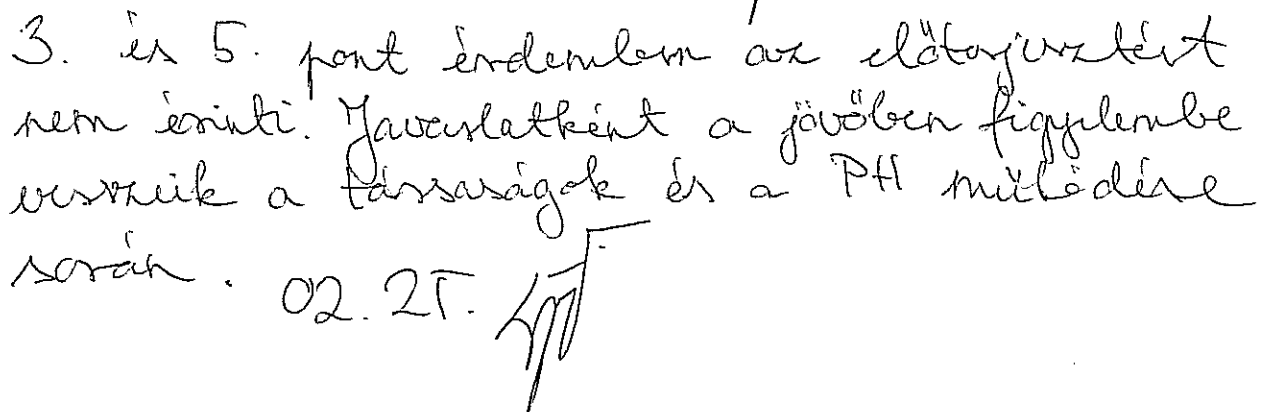 3. és 5. pont érdemben az előterjesztést
nem érinti. Javaslatként a jövőben figyelembe
vesszük a társaságok és a PH működése
során. 02. 25.